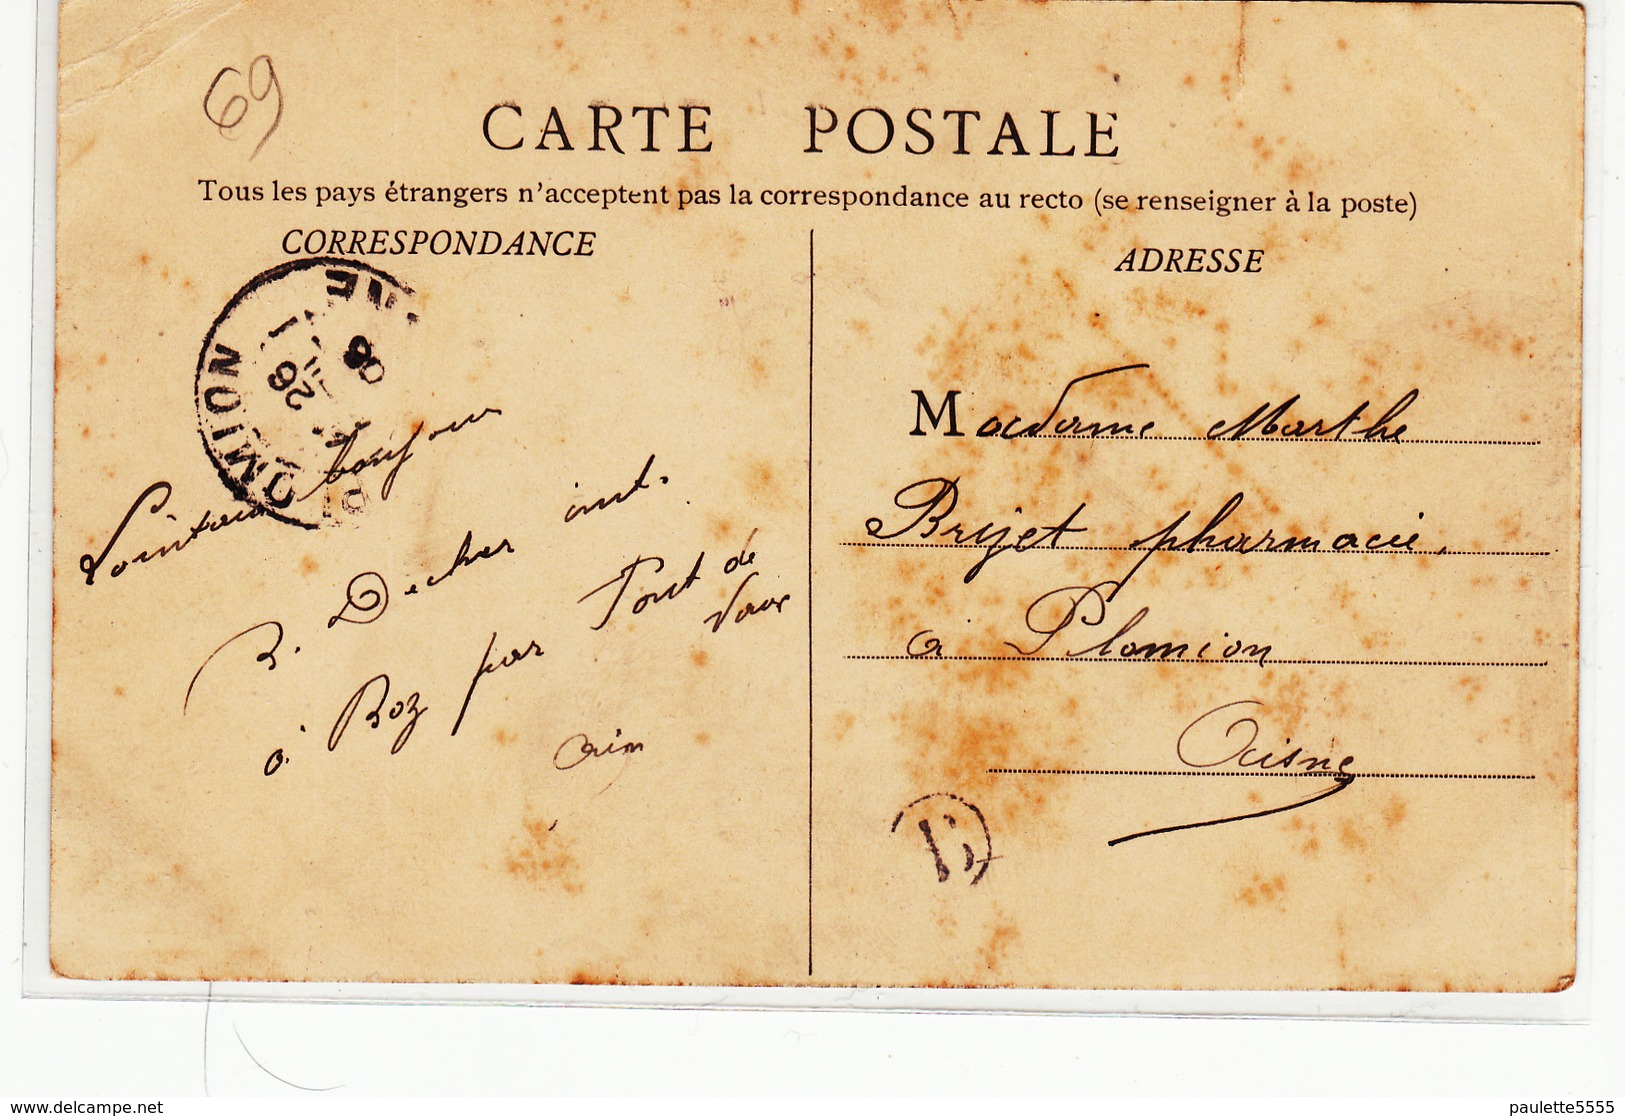 69
CARTE POSTALE
Tous les pays étrangers n'acceptent pas la correspondance au recto (se renseigner à la poste)
CORRESPONDANCE
ADRESSE
PLOMION
AISNE
26
08
Lointain bonjour
B. Decher inst.
à Boz par Pont de
Vaux
Ain
Madame Marthe
Brijet pharmacie.
à Plomion
Aisne
B
www.delcampe.net
paulette5555